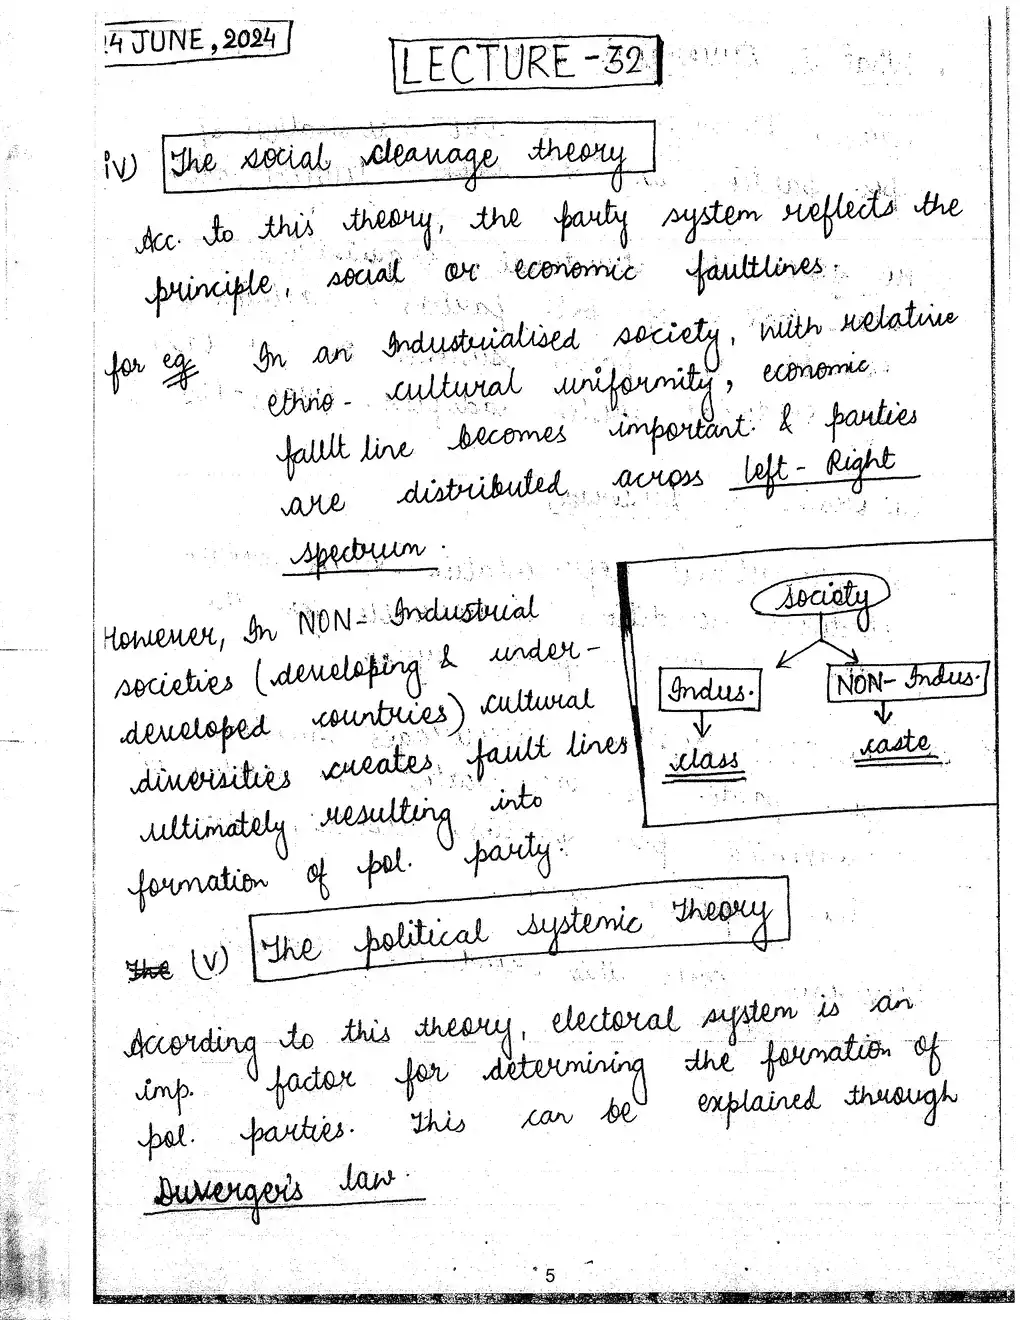 14 JUNE, 2024
LECTURE - 32
iv) The social cleavage theory
Acc. to this theory, the party system reflects the
principle, social or economic faultlines.
for eg In an Industrialised society, with relative
ethno - cultural uniformity, economic
fault line becomes important & parties
are distributed across left - Right
spectrum.
However, In NON - Industrial
societies (developing & under -
developed countries) cultural
diversities creates fault lines
ultimately resulting into
formation of pol. party.
society
Indus. NON - Indus.
class caste
The (v) The political systemic Theory
According to this theory, electoral system is an
imp. factor for determining the formation of
pol. parties. This can be explained through
Duverger's law.
5